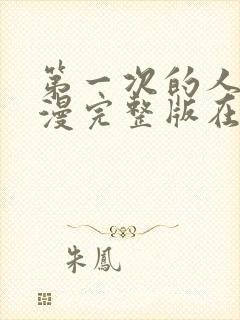 第一次的人
漫完整版在
朱鳳